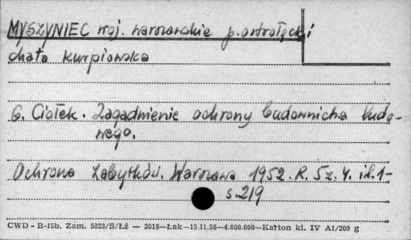 MYSZYNIEC woj. warszawskie p. ostrołęcki
chata kurpiowska
G. Ciołek. Zagadnienie ochrony budownictwa ludo-
wego.
Ochrona Zabytków. Warszawa 1952. R. 5 z. 4. il. 1-
s-219
CWD - B-15b. Zam. 5023/S/Łź — 3016—Łak—15.11.56—4.000.000—Karton kl. IV A1/200 g